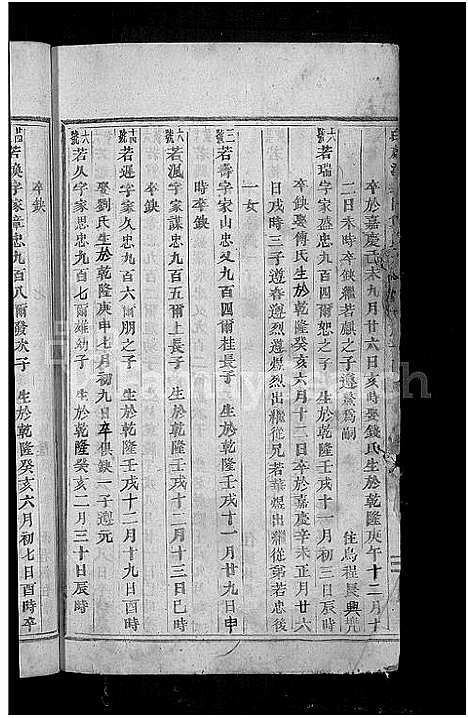 卒於嘉慶己未九月廿六日亥時娶錢氏生於乾隆庚午十二月十
二日未時卒缺繼若麒之子遵為嗣 住烏程晟興兠
六號 若瑞字家盛忠九百四爾恕之子 生於乾隆壬戌十一月初三日辰時
卒缺娶傅氏生於乾隆癸亥六月十二日卒於嘉慶辛未正月廿六
日戌時三子遵春遵烈遵煜烈出繼從兄若華煜出繼從弟若忠後
一女
三號 若壽字家山忠又九百四爾桂長子 生於乾隆壬戌十一月廿九日申
時卒缺
六號 若渢字家謀忠九百五爾上長子 生於乾隆壬戌十二月十三日巳時
卒缺
十四號 若遲字家久忠九百六爾朋之子 生於乾隆壬戌十二月十九日酉時
娶劉氏生於乾隆庚申七月初九日卒俱缺一子遵元
六號 若久字家思忠九百七爾雄幼子 生於乾隆癸亥二月三十日辰時
卒缺
若渙字家章忠九百八爾發次子 生於乾隆癸亥六月初七日酉時卒